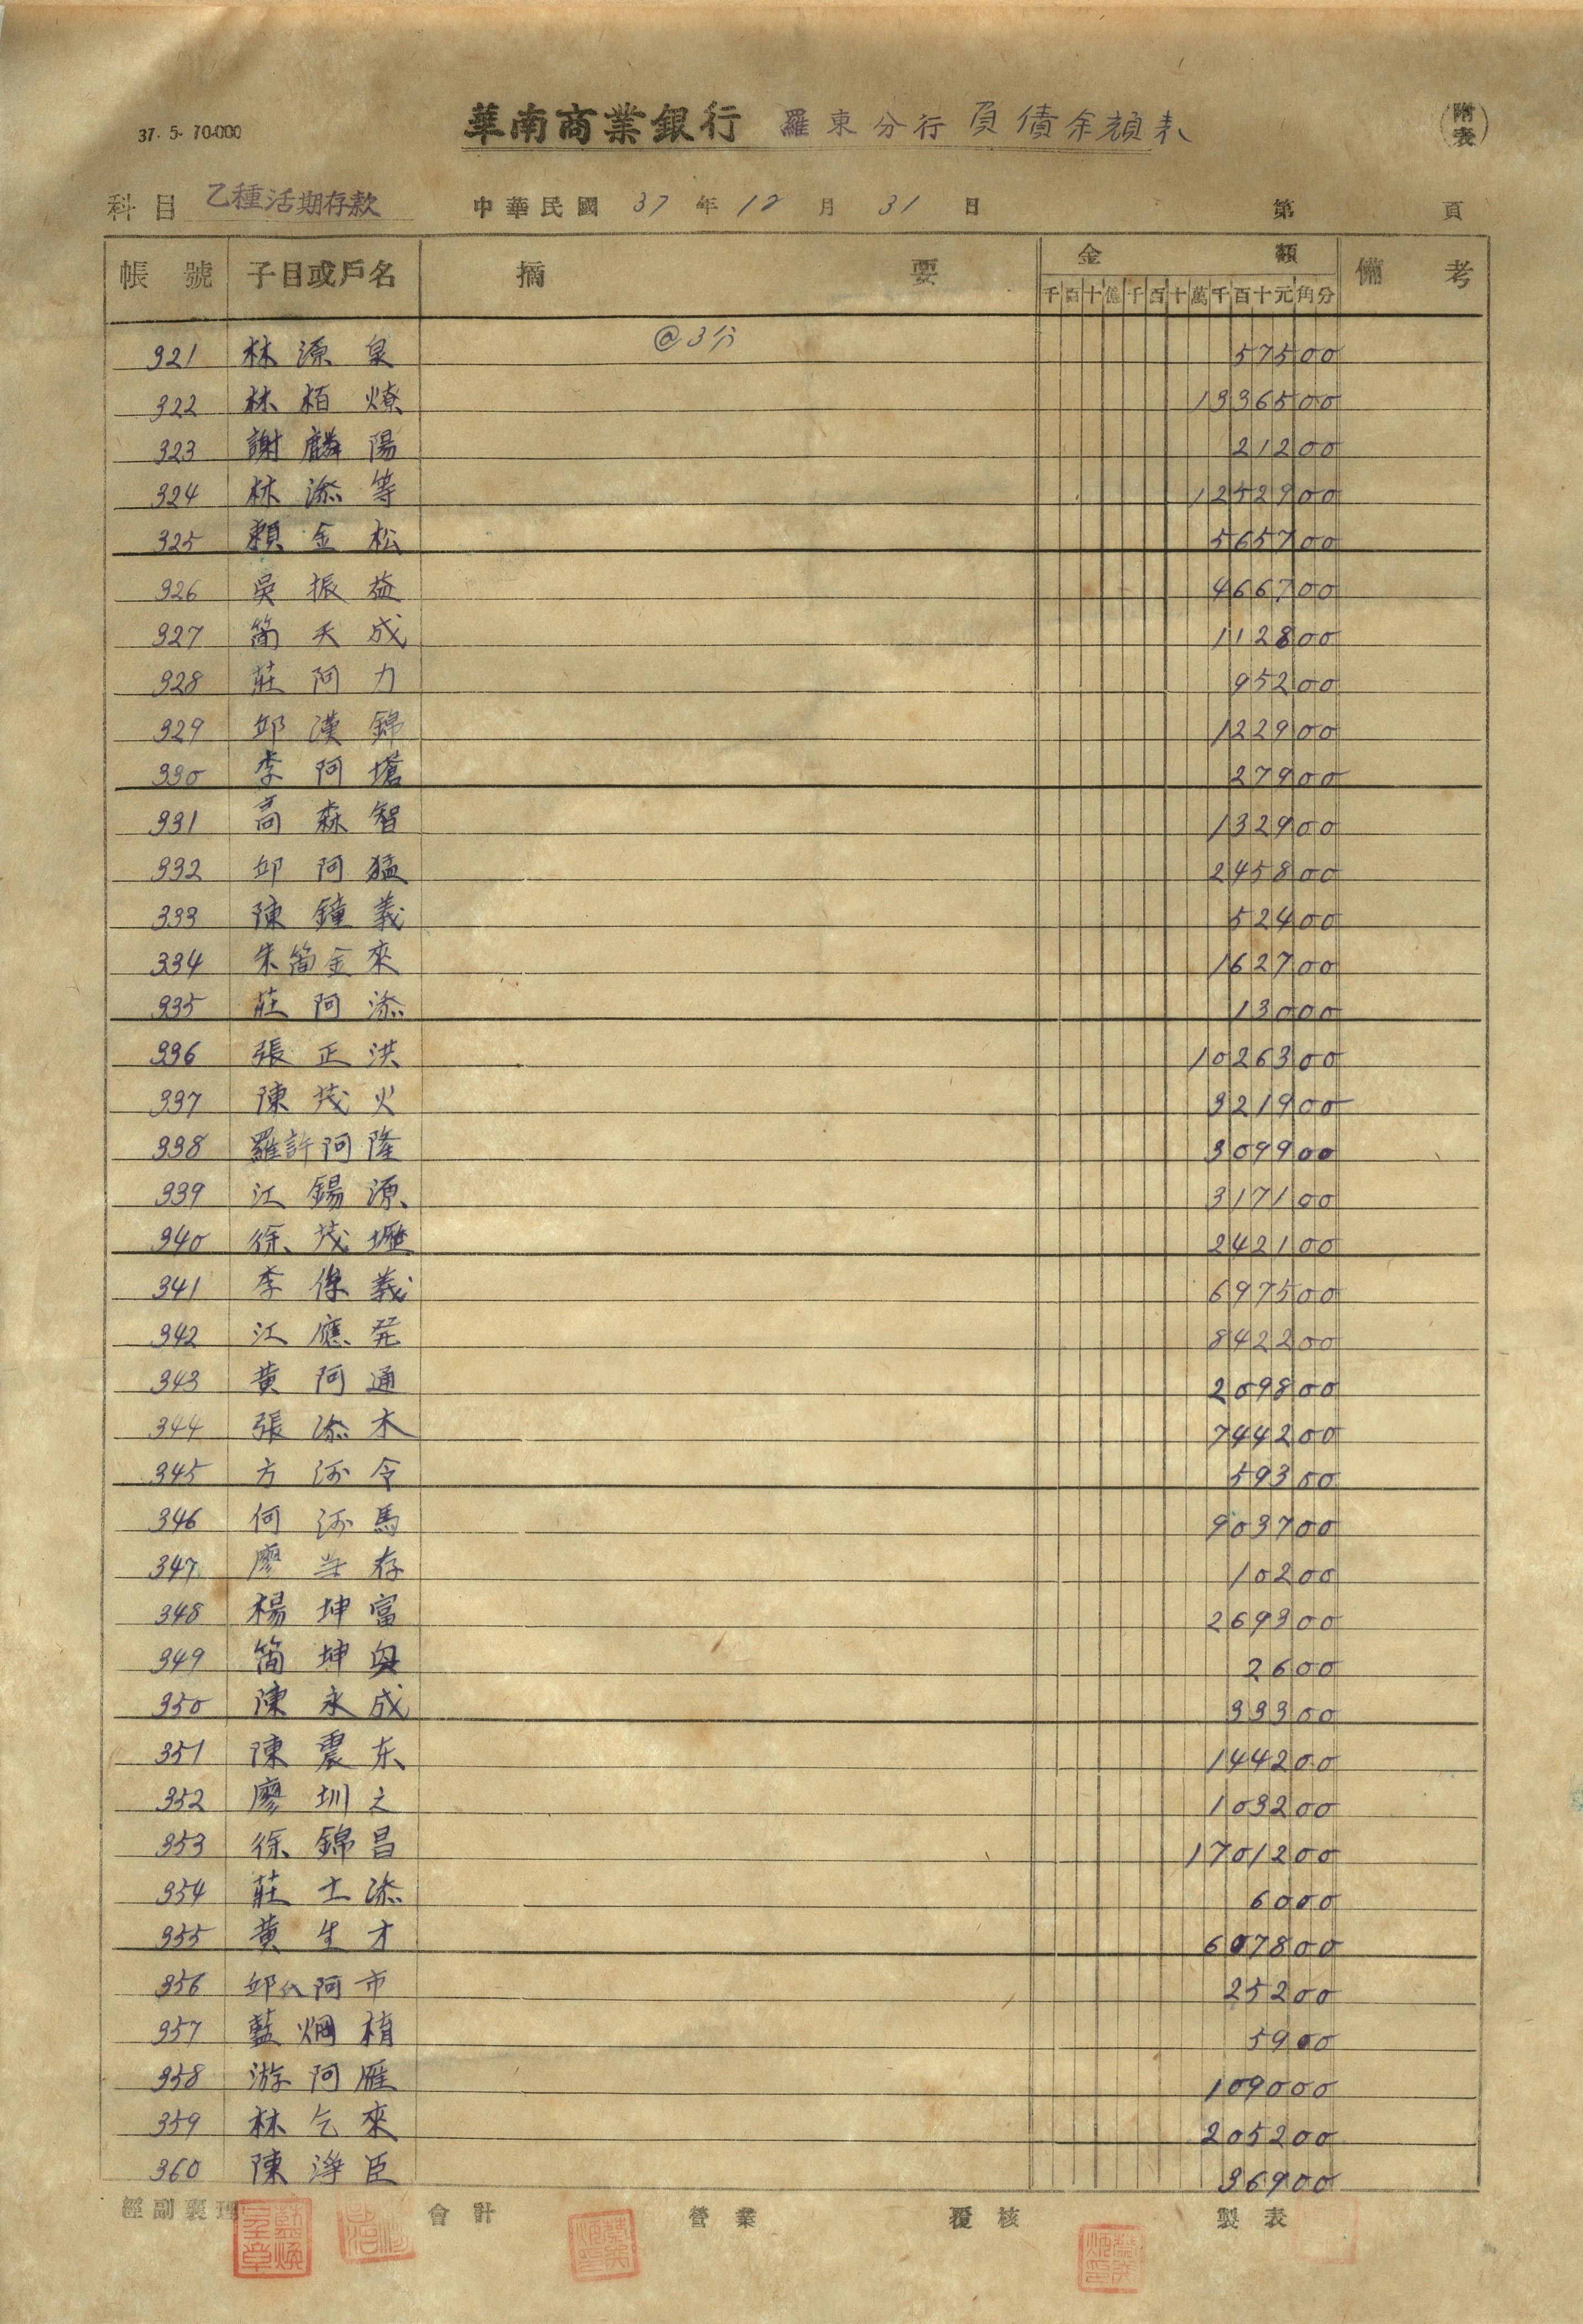 37. 5. 70.000
華南商業銀行 羅東分行 負債余額表
(附表)
科目 乙種活期存款 中華民國 37 年 12 月 31 日 第 頁
帳號 子目或戶名 摘要 金額 備考
千百十億千百十萬千百十元角分
321 林源泉 @3分 57500
322 林栢燎 1336500
323 謝麟陽 21200
324 林添等 1252900
325 賴金松 565700
326 吳振益 466700
327 簡天成 112800
328 莊阿力 95200
329 邱漢錦 122900
330 李阿墻 27900
331 高森智 132900
332 邱阿猛 245800
333 陳鐘義 52400
334 朱簡金來 162700
335 莊阿添 13000
336 張正洪 1026300
337 陳茂火 321900
338 羅許阿隆 309900
339 江錫源 317100
340 徐茂壢 242100
341 李保義 697500
342 江應発 842200
343 黃阿通 209800
344 張添木 744200
345 方添令 59300
346 何添馬 903700
347 廖 存 10200
348 楊坤富 269300
349 簡坤 2600
350 陳永成 33300
351 陳震东 144200
352 廖圳之 103200
353 徐錦昌 1701200
354 莊士添 6000
355 黃生才 607800
356 邱氏阿市 25200
357 藍烱楨 5900
358 游阿雁 109000
359 林乞來 205200
360 陳淨臣 36900
經副襄理 會計 營業 覆核 製表